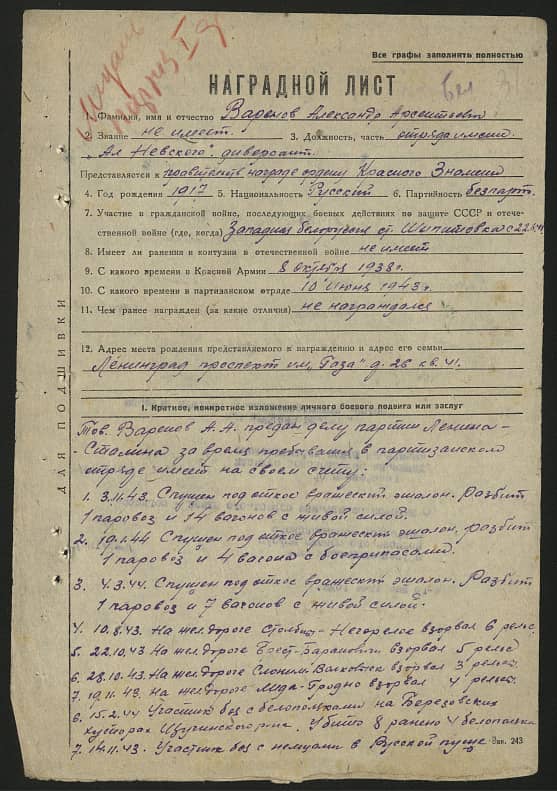 Медаль
Все графы заполнять полностью
НАГРАДНОЙ ЛИСТ
1. Фамилия, имя и отчество Варенов Александр Арсентьевич
2. Звание не имеет. 3. Должность, часть отряда имени
"Ал Невского" диверсант.
Представляется к правительств награде ордени Красного Знамени
4. Год рождения 1917 5. Национальность Русский 6. Партийность беспарт.
7. Участие в гражданской войне, последующих боевых действиях по защите СССР и отече-
ственной войне (где, когда) Западная белоруссия ст.
8. Имеет ли ранения и контузии в отечественной войне не имеет
9. С какого времени в Красной Армии 8 октября 1938 г.
10. С какого времени в партизанском отряде 10 июня 1943 г.
11. Чем ранее награжден (за какие отличия) не награждался
12. Адрес места рождения представляемого к награждению и адрес его семьи
Ленинград проспект им. "Газа" д. 26 кв. 41.
ДЛЯ ПОДШИВКИ
I. Краткое, конкретное изложение личного боевого подвига или заслуг
Тов. Варенов А.А. предан делу партии Ленина-
Сталина за время пребывания в партизанском
отряде имеет на своем счету:
1. 3.11.43. Спущен под откос вражеский эшалон. Разбит
1 паровоз и 14 вагонов с живой силой.
2. 19.1.44 Спущен под откос вражеский эшалон, разбит
1 паровоз и 4 вагона с боеприпасами.
3. 4.3.44. Спущен под откос вражеский эшалон. Разбит
1 паровоз и 7 вагонов с живой силой.
4. 10.8.43. На жел дороге Столбцы - Негорелое взорвал 6 рельс
5. 22.10.43 На жел дороге Брест-Барановичи взорвал 5 рельс
6. 28.10.43 На жел дороге Слоним Волковыск взорвал 3 рельс.
7. 19.11.43. На жел дороге Лида-Гродно взорвал 4 рельс.
6. 15.2.44 Участник боя с белополяками на Березовских
хуторах Щучинского р-на. Убито 8 ранено 4 белополяка
7. 14.11.43. Участник боя с немцами в Русской пуще
Зак. 243